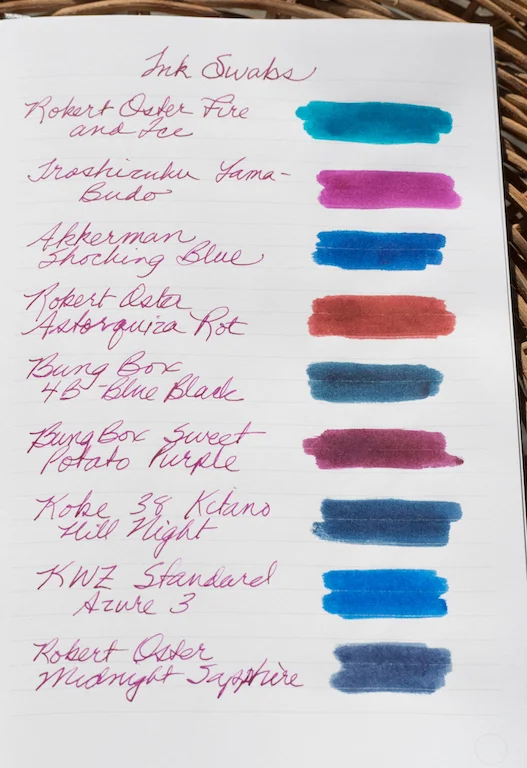 Ink Swabs
Robert Oster Fire
and Ice
Iroshizuku Yama-
Budo
Akkerman
Shocking Blue
Robert Oster
Astorquiza Rot
Bung Box
4B-Blue Black
BungBox Sweet
Potato Purple
Kobe 38 Kitano
Hill Night
KWZ Standard
Azure 3
Robert Oster
Midnight Sapphire